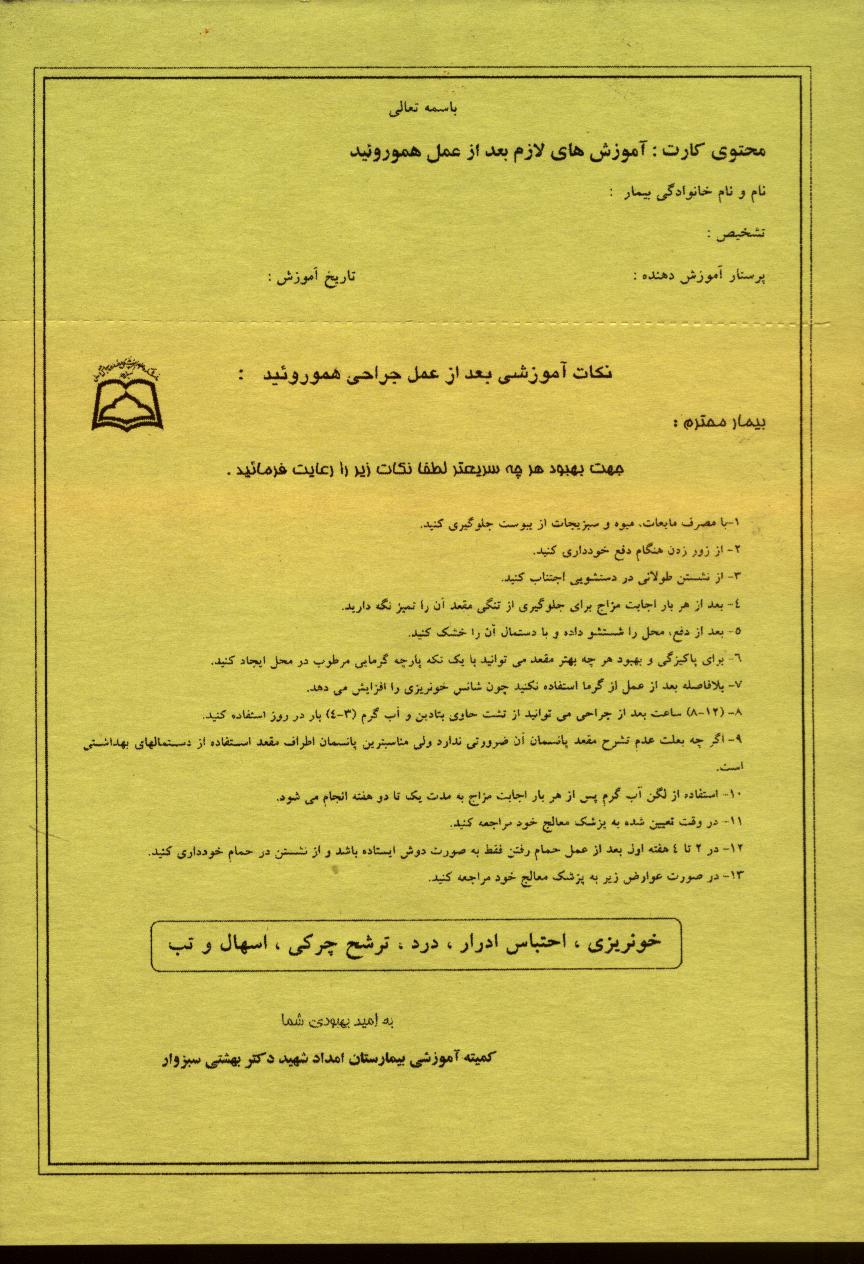 باسمه تعالی
محتوی کارت : آموزش های لازم بعد از عمل هموروئید
نام و نام خانوادگی بیمار :
تشخیص :
پرستار آموزش دهنده : تاریخ آموزش :
نکات آموزشی بعد از عمل جراحی هموروئید :
بیمار محترم :
جهت بهبود هر چه سریعتر لطفا نکات زیر را رعایت فرمائید .
۱-با مصرف مایعات، میوه و سبزیجات از یبوست جلوگیری کنید.
۲- از زور زدن هنگام دفع خودداری کنید.
۳- از نشستن طولانی در دستشویی اجتناب کنید.
٤- بعد از هر بار اجابت مزاج برای جلوگیری از تنگی مقعد آن را تمیز نگه دارید.
۵- بعد از دفع، محل را شستشو داده و با دستمال آن را خشک کنید.
٦- برای پاکیزگی و بهبود هر چه بهتر مقعد می توانید با یک تکه پارچه گرمایی مرطوب در محل ایجاد کنید.
۷- بلافاصله بعد از عمل از گرما استفاده نکنید چون شانس خونریزی را افزایش می دهد.
۸- (۱۲-۸) ساعت بعد از جراحی می توانید از تشت حاوی بتادین و آب گرم (۳-٤) بار در روز استفاده کنید.
۹- اگر چه بعلت عدم تشرح مقعد پانسمان آن ضرورتی ندارد ولی مناسبترین پانسمان اطراف مقعد استفاده از دستمالهای بهداشتی
است.
۱۰- استفاده از لگن آب گرم پس از هر بار اجابت مزاج به مدت یک تا دو هفته انجام می شود.
۱۱- در وقت تعیین شده به پزشک معالج خود مراجعه کنید.
۱۲- در ۲ تا ٤ هفته اول بعد از عمل حمام رفتن فقط به صورت دوش ایستاده باشد و از نشستن در حمام خودداری کنید.
۱۳- در صورت عوارض زیر به پزشک معالج خود مراجعه کنید.
خونریزی ، احتباس ادرار ، درد ، ترشح چرکی ، اسهال و تب
به امید بهبودی شما
کمیته آموزشی بیمارستان امداد شهید دکتر بهشتی سبزوار